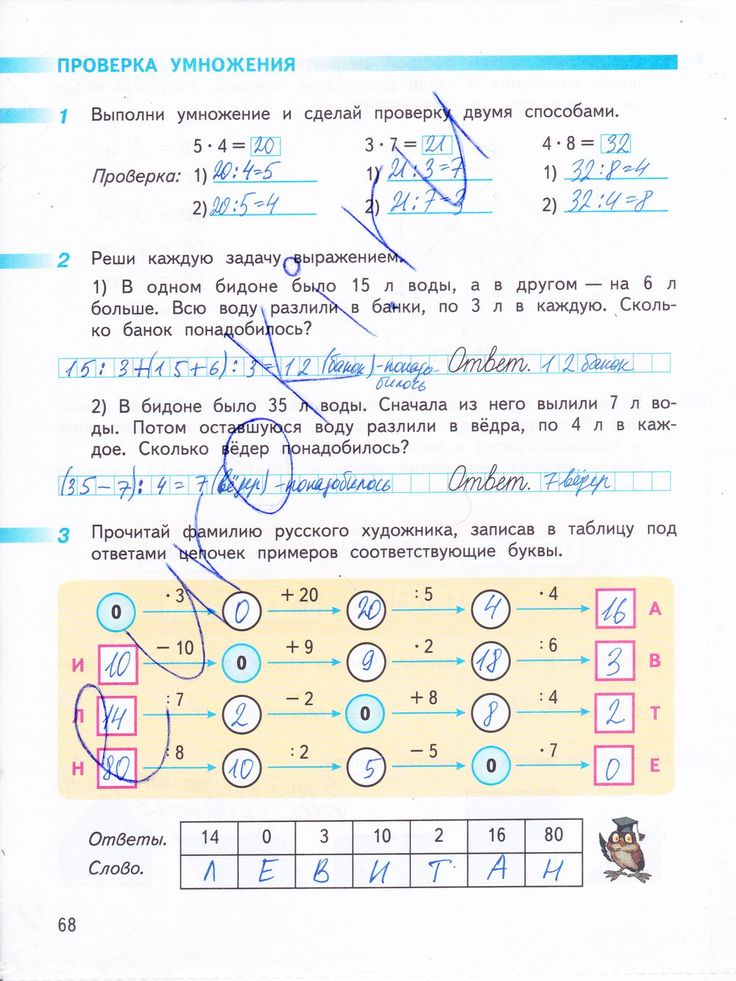 ПРОВЕРКА УМНОЖЕНИЯ
1 Выполни умножение и сделай проверку двумя способами.
5 · 4 = 20 3 · 7 = 21 4 · 8 = 32
Проверка: 1) 20:4=5 1) 21:3=7 1) 32:8=4
2) 20:5=4 2) 21:7=3 2) 32:4=8
2 Реши каждую задачу выражением.
1) В одном бидоне было 15 л воды, а в другом — на 6 л
больше. Всю воду разлили в банки, по 3 л в каждую. Сколь-
ко банок понадобилось?
15 : 3+(15+6) : 3=12 (банок)-понадо-
билось Ответ. 12 банок
2) В бидоне было 35 л воды. Сначала из него вылили 7 л во-
ды. Потом оставшуюся воду разлили в вёдра, по 4 л в каж-
дое. Сколько вёдер понадобилось?
(35-7) : 4 = 7 (вёдер) -понадобилось Ответ. 7 вёдер
3 Прочитай фамилию русского художника, записав в таблицу под
ответами цепочек примеров соответствующие буквы.
0 · 3 0 + 20 20 : 5 4 · 4 16 А
И 10 − 10 0 + 9 9 · 2 18 : 6 3 В
Л 14 : 7 2 − 2 0 + 8 8 : 4 2 Т
Н 80 : 8 10 : 2 5 − 5 0 · 7 0 Е
Ответы. 14 0 3 10 2 16 80
Слово. Л Е В И Т А Н
68
2yroki.ru